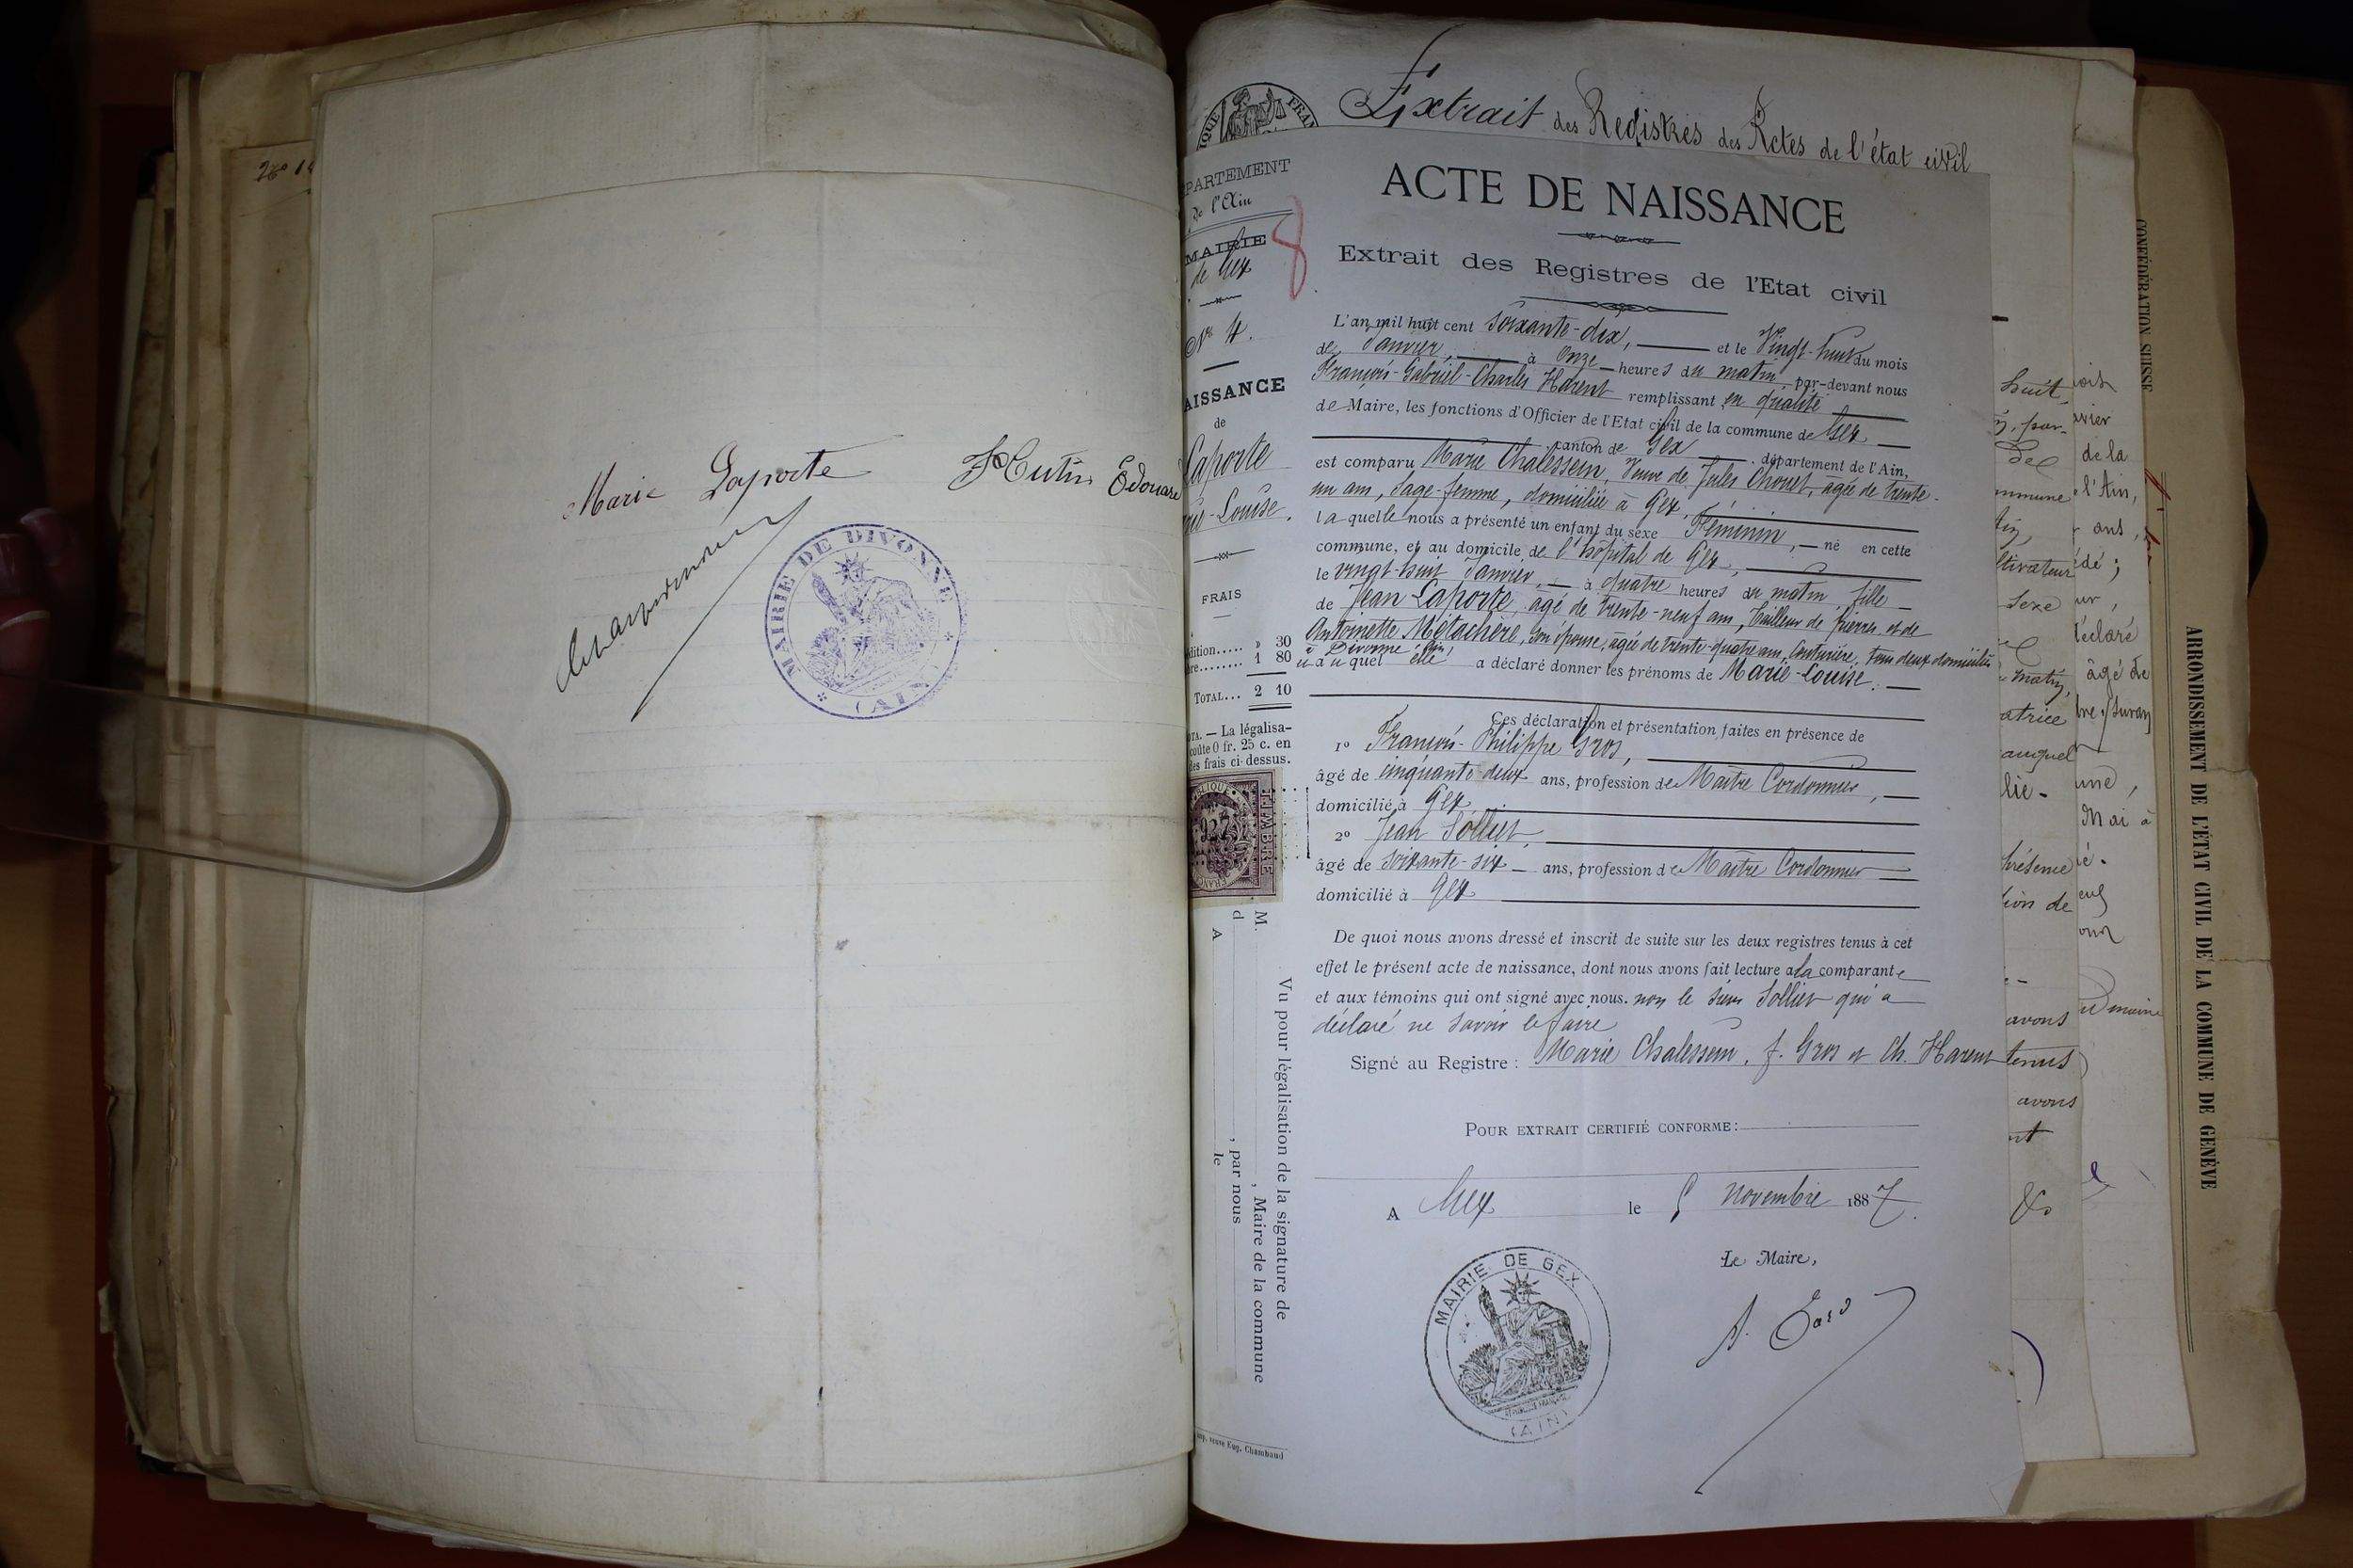 Marie Laporte
Hutin Edouard
MAIRIE DE DIVONNE
(AIN)
Extrait des Registres des Actes de l'état civil
PARTEMENT
de l'Ain
MAIRIE
de Gex
N° 4.
AISSANCE
de
Laporte
Louise.
FRAIS
30
1 80
TOTAL... 2 10
— La légalisa-
coûte 0 fr. 25 c. en
des frais ci-dessus.
TIMBRE
ACTE DE NAISSANCE
Extrait des Registres de l'Etat civil
L'an mil huit cent soixante-dix, et le Vingt-huit du mois
de Janvier, à onze heures du matin, par-devant nous
François-Gabriel-Charles Harent remplissant en qualité
de Maire, les fonctions d'Officier de l'Etat civil de la commune de Gex
canton de Gex département de l'Ain,
est comparu Marie Chalessein, Veuve de Jules Chouet, agée de trente-
un ans, Sage-femme, domiciliée à Gex,
laquelle nous a présenté un enfant du sexe Féminin, né en cette
commune, et au domicile de l'hôpital de Gex,
le vingt-huit Janvier, à quatre heures du matin fille
de Jean Laporte, agé de trente-neuf ans, Tailleur de pierres, et de
Antoinette Métachère, son épouse, âgée de trente-quatre ans, Couturière, tous deux domiciliés
à Divonne (Ain)
auquel elle a déclaré donner les prénoms de Marie-Louise.
Ces déclaration et présentation faites en présence de
1° François-Philippe Gros,
âgé de cinquante-deux ans, profession de Maître Cordonnier,
domicilié à Gex
2° Jean Sollier,
âgé de soixante-six ans, profession de Maître Cordonnier
domicilié à Gex
De quoi nous avons dressé et inscrit de suite sur les deux registres tenus à cet
effet le présent acte de naissance, dont nous avons fait lecture a la comparante
et aux témoins qui ont signé avec nous. non le sieur Sollier qui a
déclaré ne savoir le faire
Signé au Registre : Marie Chalessein, f. Gros et Ch. Harent
POUR EXTRAIT CERTIFIÉ CONFORME :
A Gex le 5 Novembre 1887.
Le Maire,
MAIRIE DE GEX
(AIN)
Vu pour légalisation de la signature de
M. , Maire de la commune
d , par nous
A le
imp. veuve Eug. Chambaud
huit,
avons
tenus
avons
de la
l'Ain,
ans,
déclaré
âgé de
Mai à
CONFÉDÉRATION SUISSE
ARRONDISSEMENT DE L'ÉTAT CIVIL DE LA COMMUNE DE GENÈVE